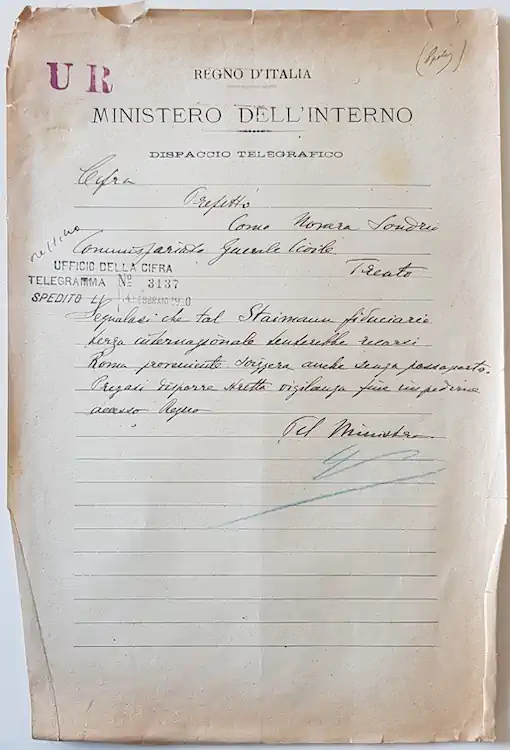 U R
REGNO D'ITALIA
MINISTERO DELL'INTERNO
DISPACCIO TELEGRAFICO
Cifra
Prefetti
Como Novara Sondrio
Commissariato Gen.le Civile
Trento
UFFICIO DELLA CIFRA
TELEGRAMMA No 3137
SPEDITO IL 4 FEBBRAIO 1920
Segnalasi che tal Staimann fiduciario
terza internazionale tenterebbe recarsi
Roma proveniente Svizzera anche senza passaporto.
Pregasi disporre stretta vigilanza fine impedirne
accesso Regno
Pel Ministro